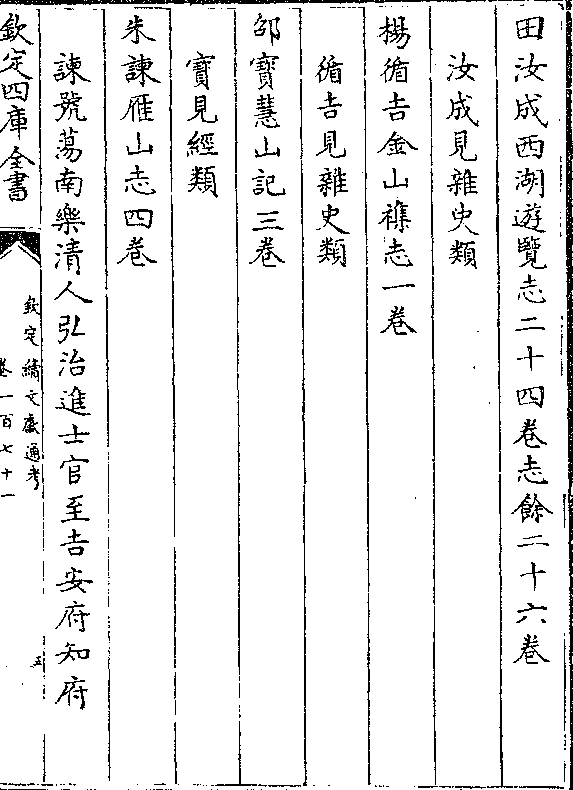 田汝成西湖遊覽志二十四卷志餘二十六卷
汝成見雜史類
楊循吉金山襍志一卷
循吉見雜史類
邵寶慧山記三卷
寶見經類
朱諫雁山志四卷
諫號蕩南樂清人弘治進士官至吉安府知府
欽定四庫全書
欽定續文獻通考
卷一百七十一
五